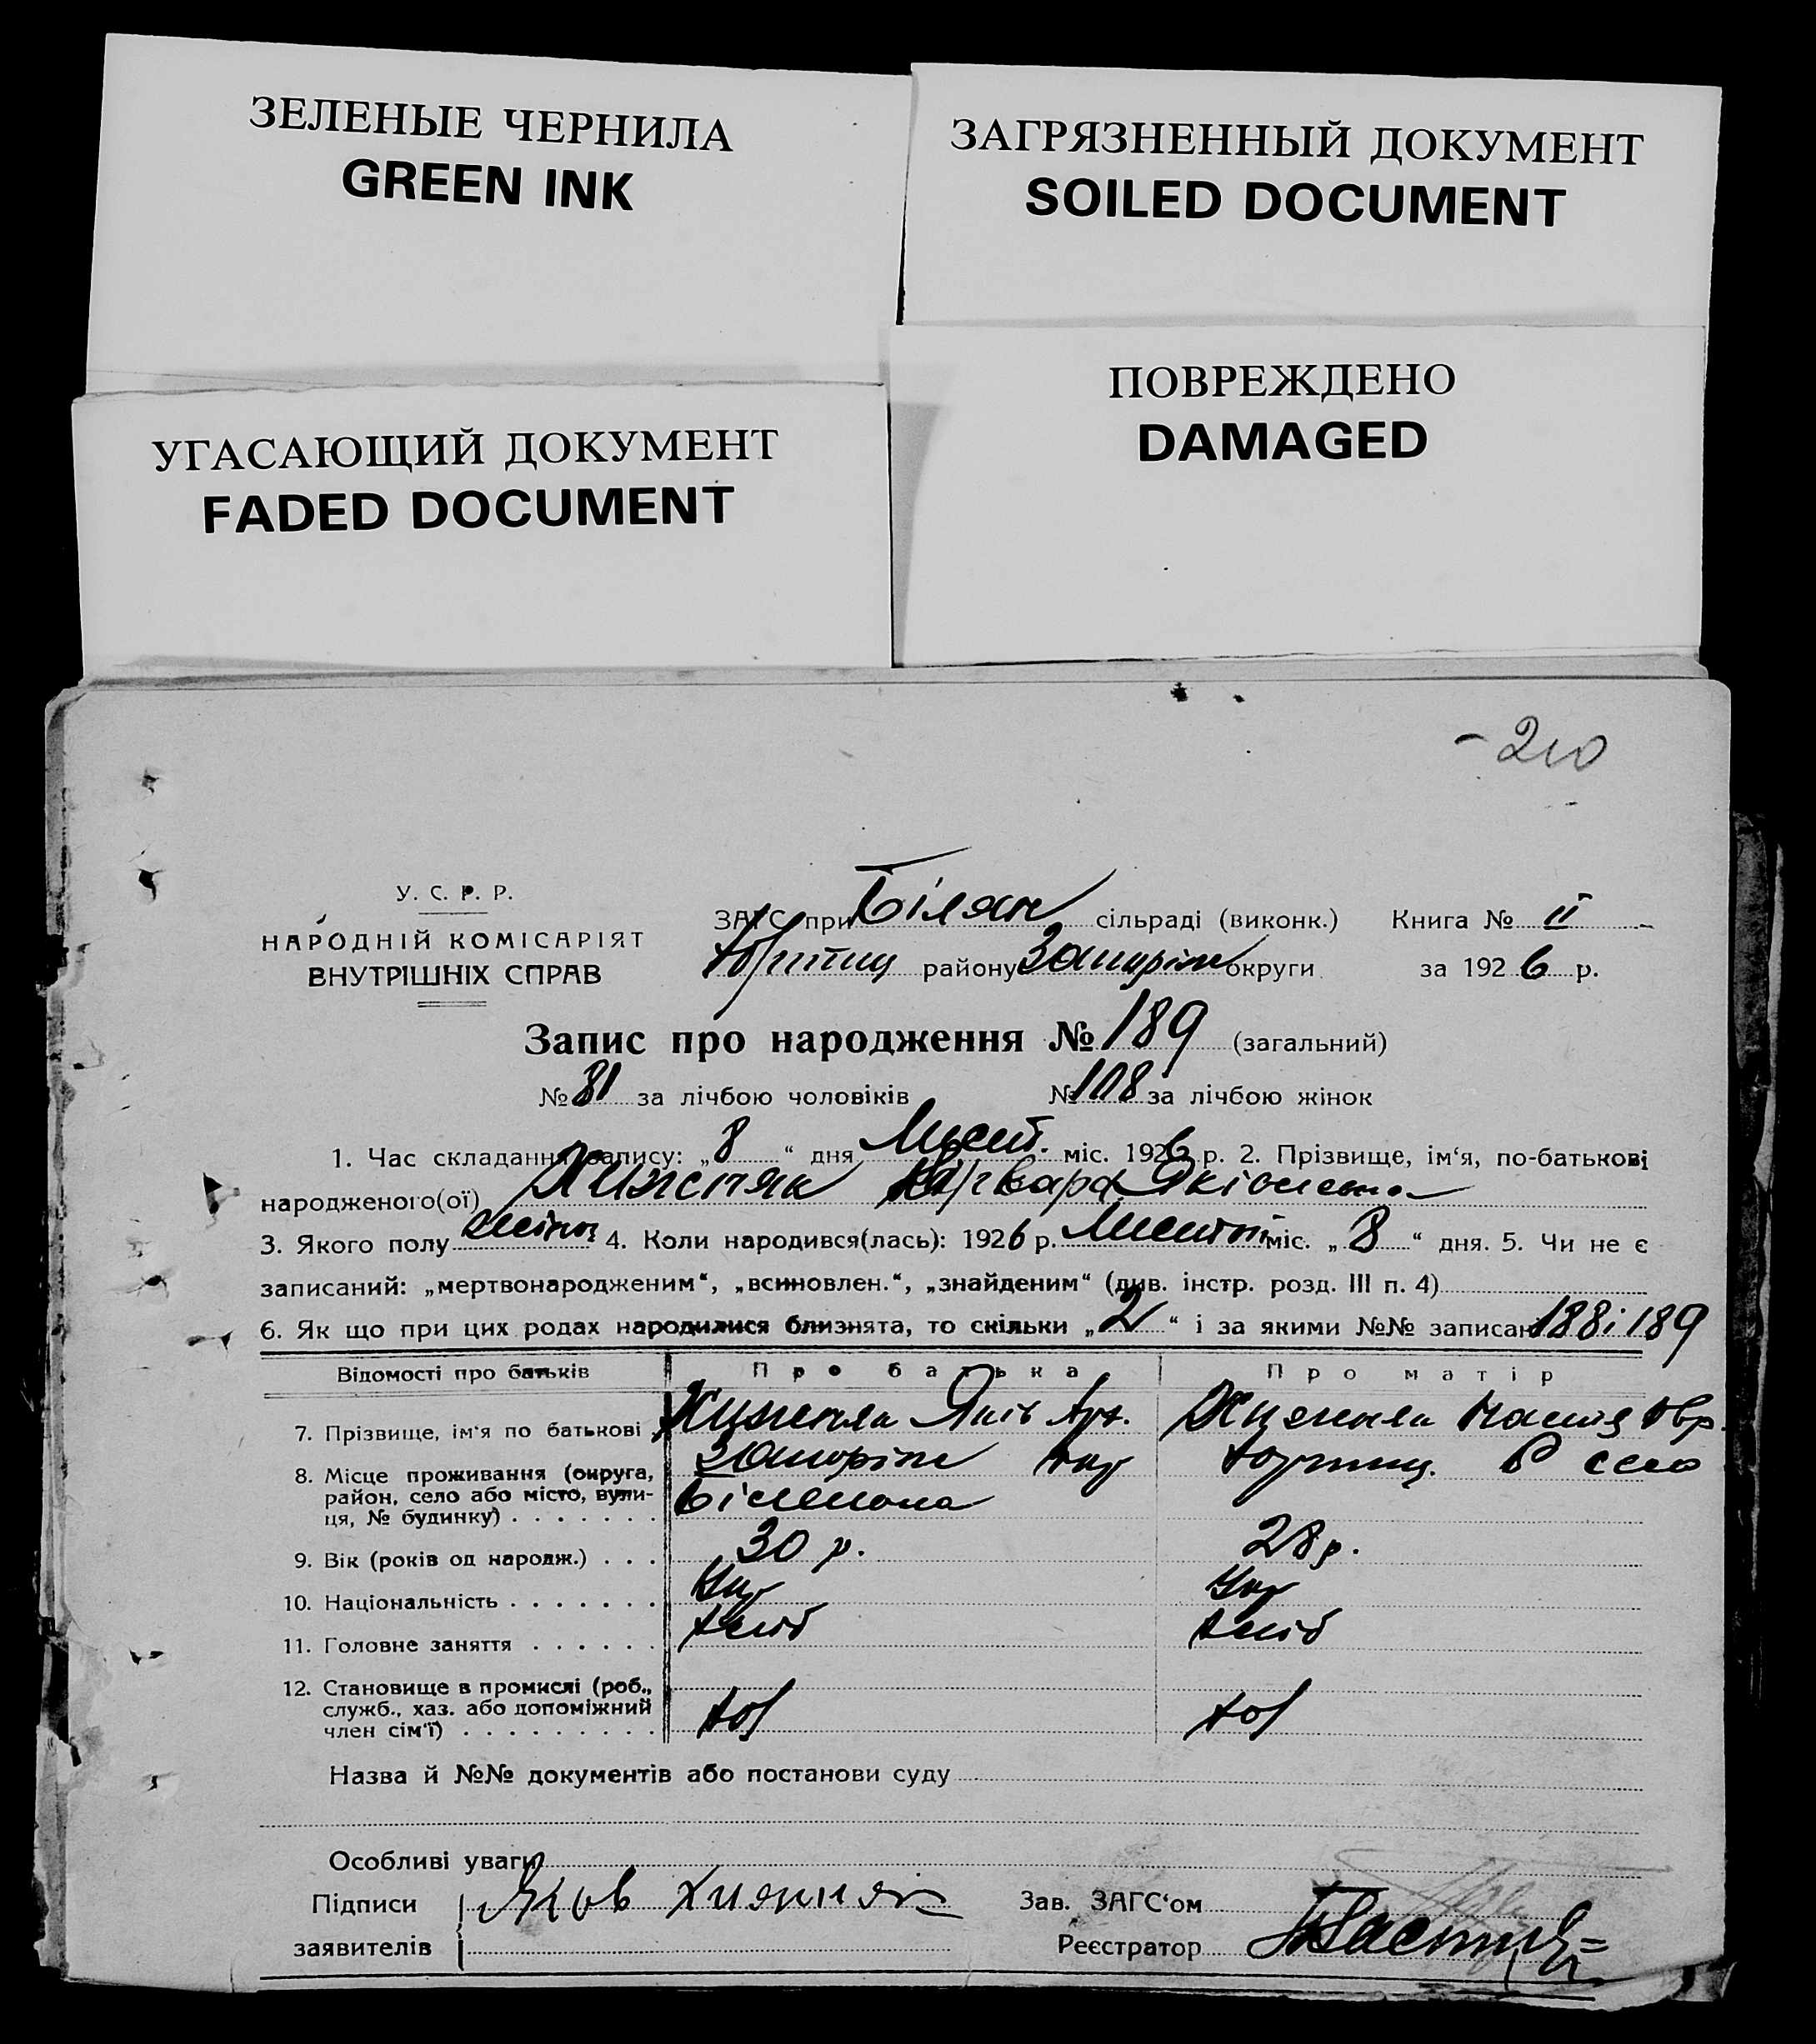 ЗЕЛЕНЫЕ ЧЕРНИЛА
GREEN INK
ЗАГРЯЗНЕННЫЙ ДОКУМЕНТ
SOILED DOCUMENT
УГАСАЮЩИЙ ДОКУМЕНТ
FADED DOCUMENT
ПОВРЕЖДЕНО
DAMAGED
210
У. С. Р. Р.
НАРОДНІЙ КОМІСАРІЯТ
ВНУТРІШНІХ СПРАВ
ЗАГС при Білян сільраді (виконк.) Книга № II
району Запоріж округи за 1926 р.
Запис про народження № 189 (загальний)
№ 81 за лічбою чоловіків № 108 за лічбою жінок
1. Час складання запису: „8“ дня міс. 1926 р. 2. Прізвище, ім‘я, по-батькові
народженого(ої) Варвара Яківлевна
3. Якого полу 4. Коли народився(лась): 1926 р. міс. „8“ дня. 5. Чи не є
записаний: „мертвонародженим“, „всиновлен.“, „знайденим“ (див. інстр. розд. III п. 4)
6. Як що при цих родах народилися близнята, то скільки „2“ і за якими №№ записан 188 і 189
Відомості про батьків Про батька Про матір
7. Прізвище, ім‘я по батькові Яків
8. Місце проживання (округа, Запоріж село
район, село або місто, вули-
ця, № будинку)
9. Вік (років од народж.) 30 р. 28 р.
10. Національність Укр Укр
11. Головне заняття Хліб Хліб
12. Становище в промислі (роб.,
служб., хаз. або допоміжний
член сім‘ї)
Назва й №№ документів або постанови суду
Особливі уваги
Підписи Яков Зав. ЗАГС‘ом
заявителів Реєстратор